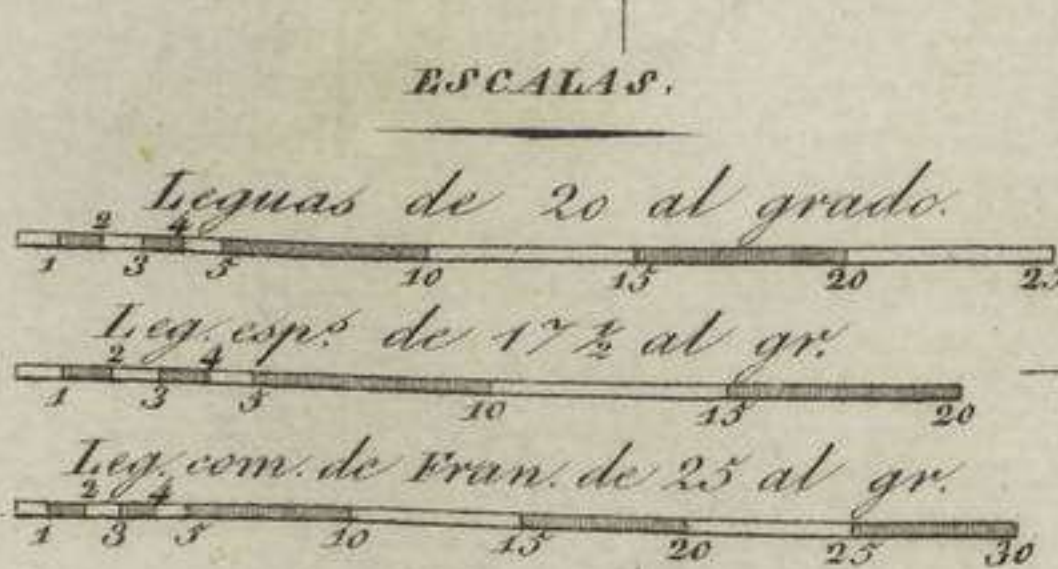 ESCALAS.
Leguas de 20 al grado.
2 4
1 3 5 10 15 20 25
Leg. esp.s de 17 1/2 al gr.
2 4
1 3 5 10 15 20
Leg. com. de Fran. de 25 al gr.
2 4
1 3 5 10 15 20 25 30